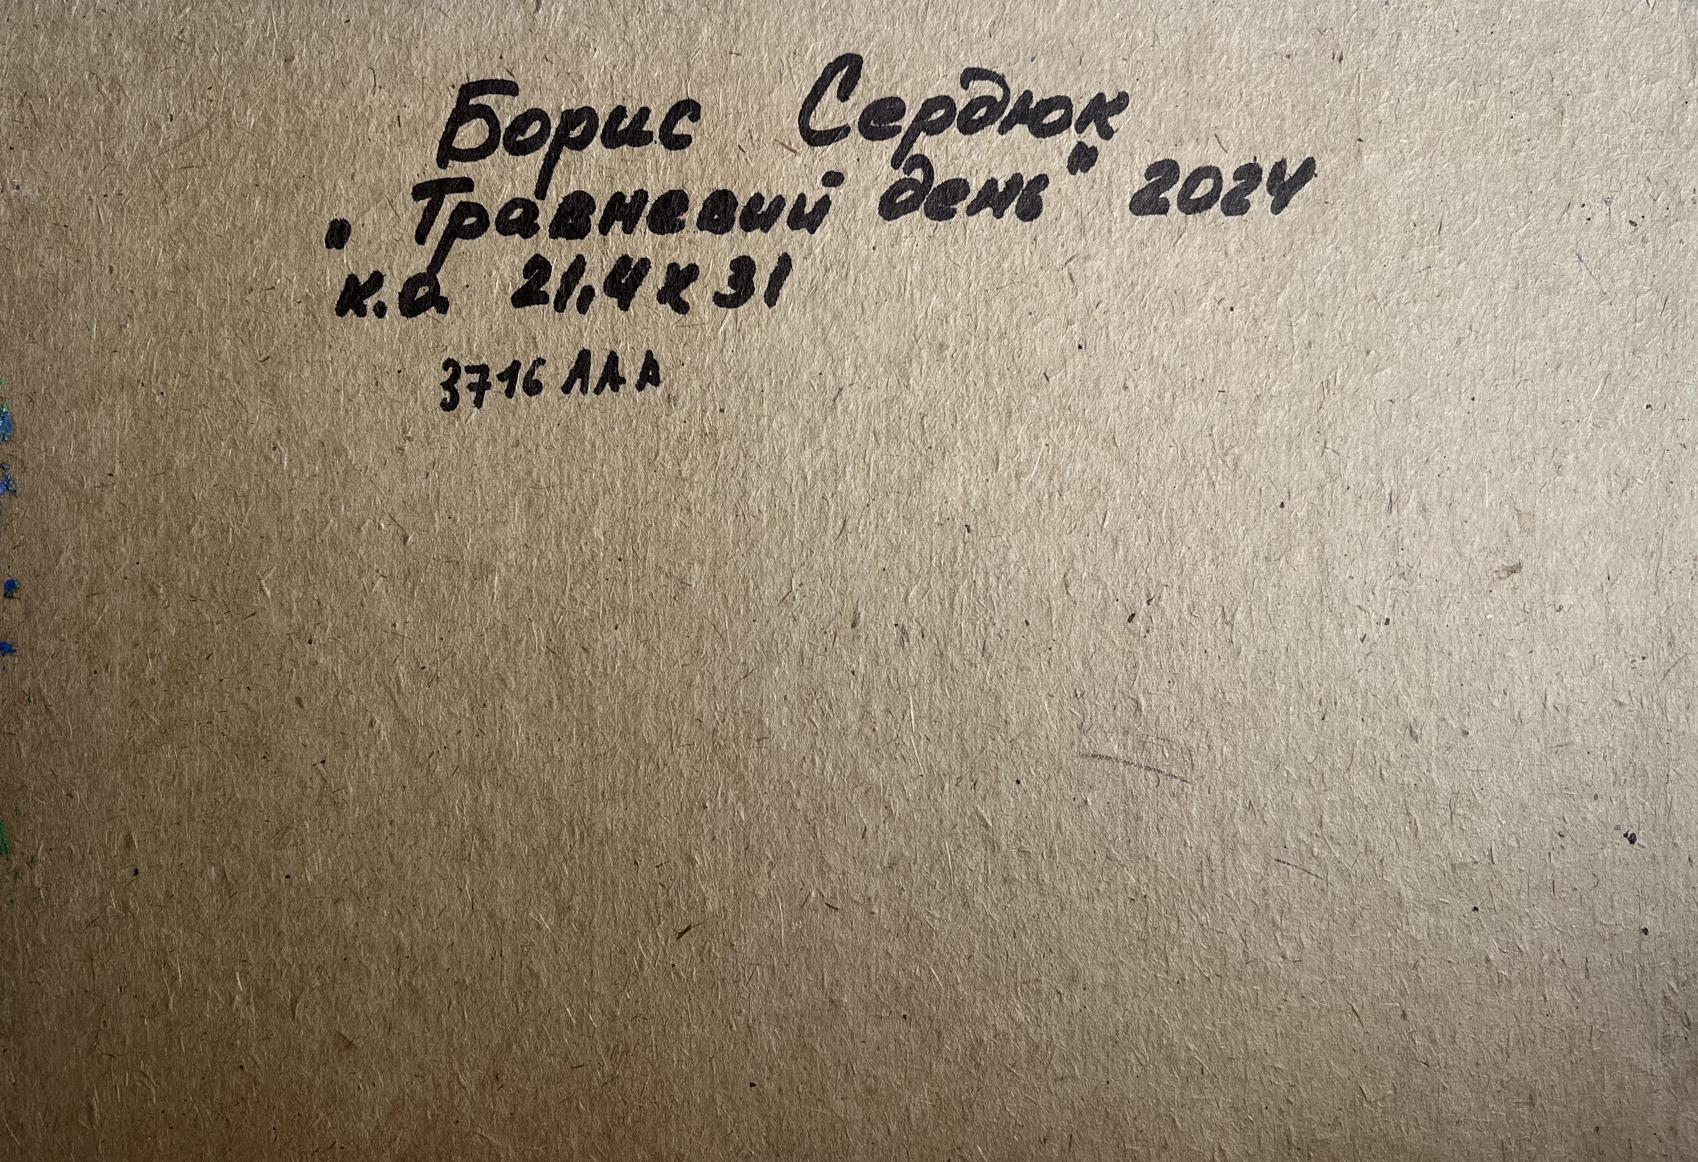 Борис Сердюк
„Травневий день" 2024
к.о. 21,4 х 31
3716 ААА